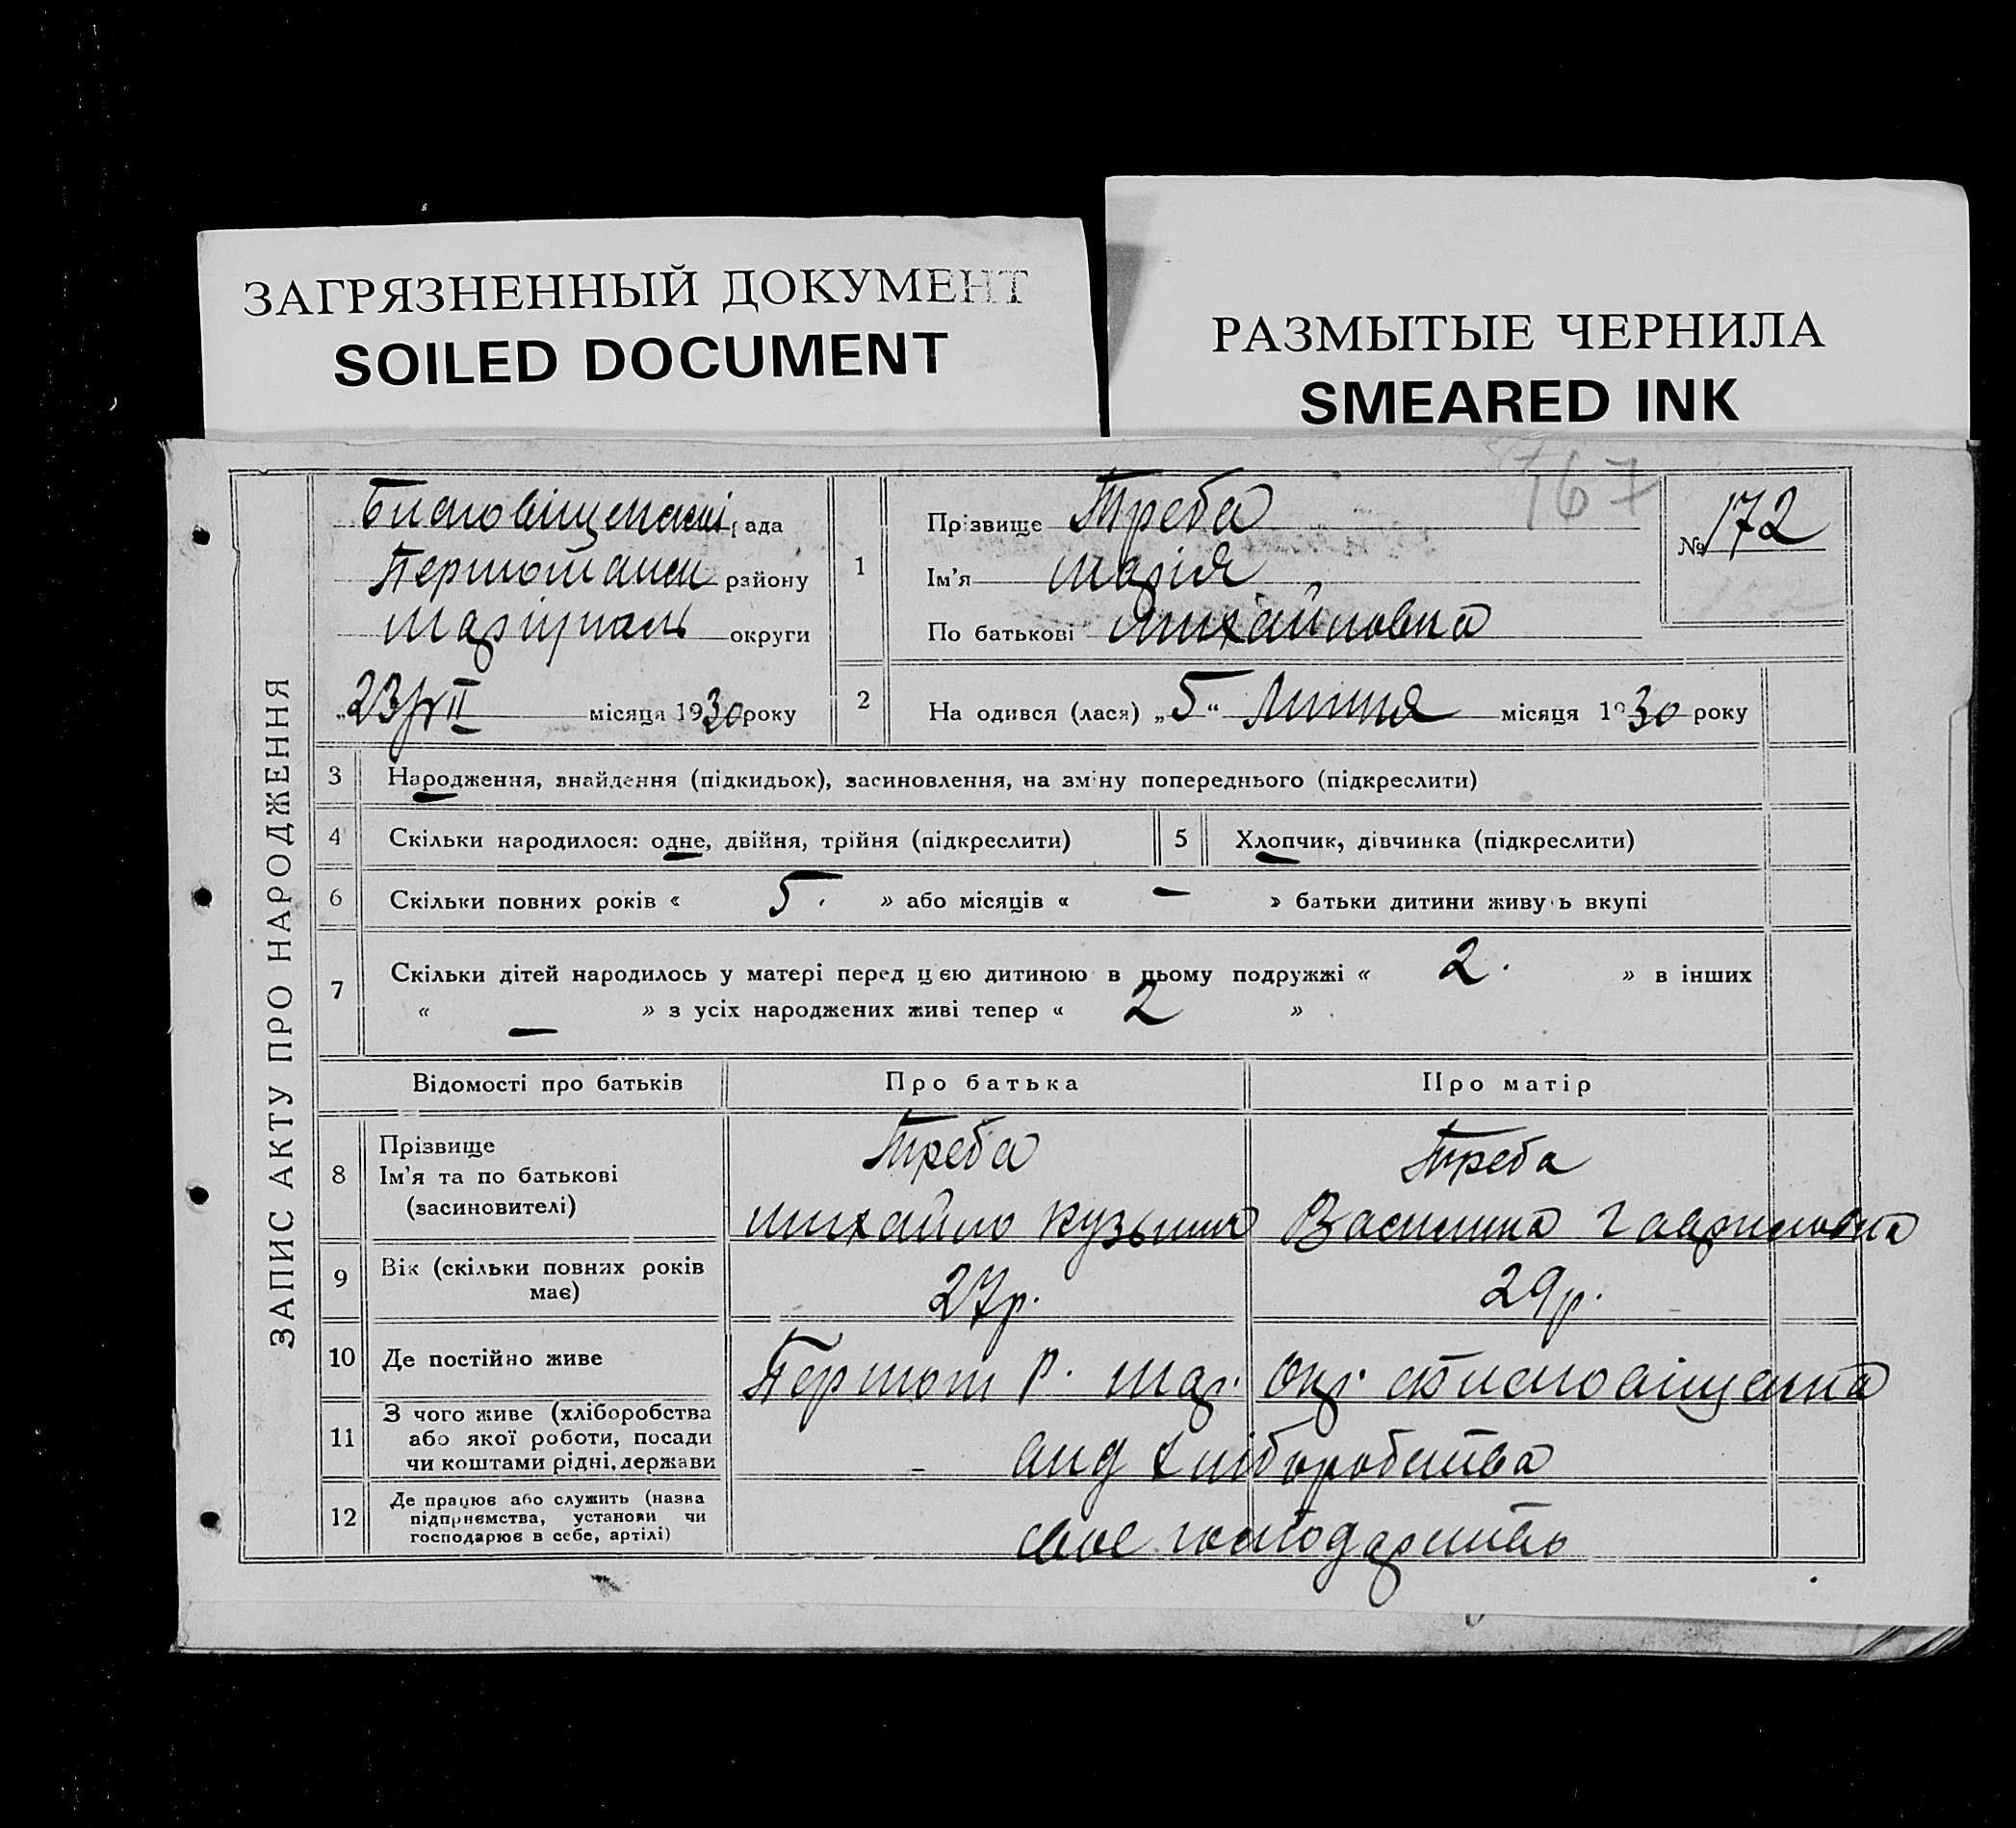 ЗАГРЯЗНЕННЫЙ ДОКУМЕНТ
SOILED DOCUMENT
РАЗМЫТЫЕ ЧЕРНИЛА
SMEARED INK
167
ЗАПИС АКТУ ПРО НАРОДЖЕННЯ
рада
району
Маріуполь округи
„23/VII місяця 1930 року
1
Прізвище Треба
Ім’я Марія
По батькові Михайловна
№ 172
2 На одився (лася) „5“ Липня місяця 1930 року
3 Народження, знайдення (підкидьох), засиновлення, на зміну попереднього (підкреслити)
4 Скільки народилося: одне, двійня, трійня (підкреслити) 5 Хлопчик, дівчинка (підкреслити)
6 Скільки повних років « 5. » або місяців « – » батьки дитини живуть вкупі
7 Скільки дітей народилось у матері перед цєю дитиною в цьому подружжі « 2. » в інших
« – » з усіх народжених живі тепер « 2 »
Відомості про батьків Про батька Про матір
8 Прізвище
Ім’я та по батькові
(засиновителі)
Треба Треба
Михайло Кузьмич Василина Гавриловна
9 Вік (скільки повних років
має)
27р. 29р.
10 Де постійно живе
Першот р. Мар. Окр.
11 З чого живе (хліборобства
або якої роботи, посади
чи коштами рідні, держави
хліборобства
12 Де працює або служить (назва
підприємства, установи чи
господарює в себе, артілі)
своє господарство